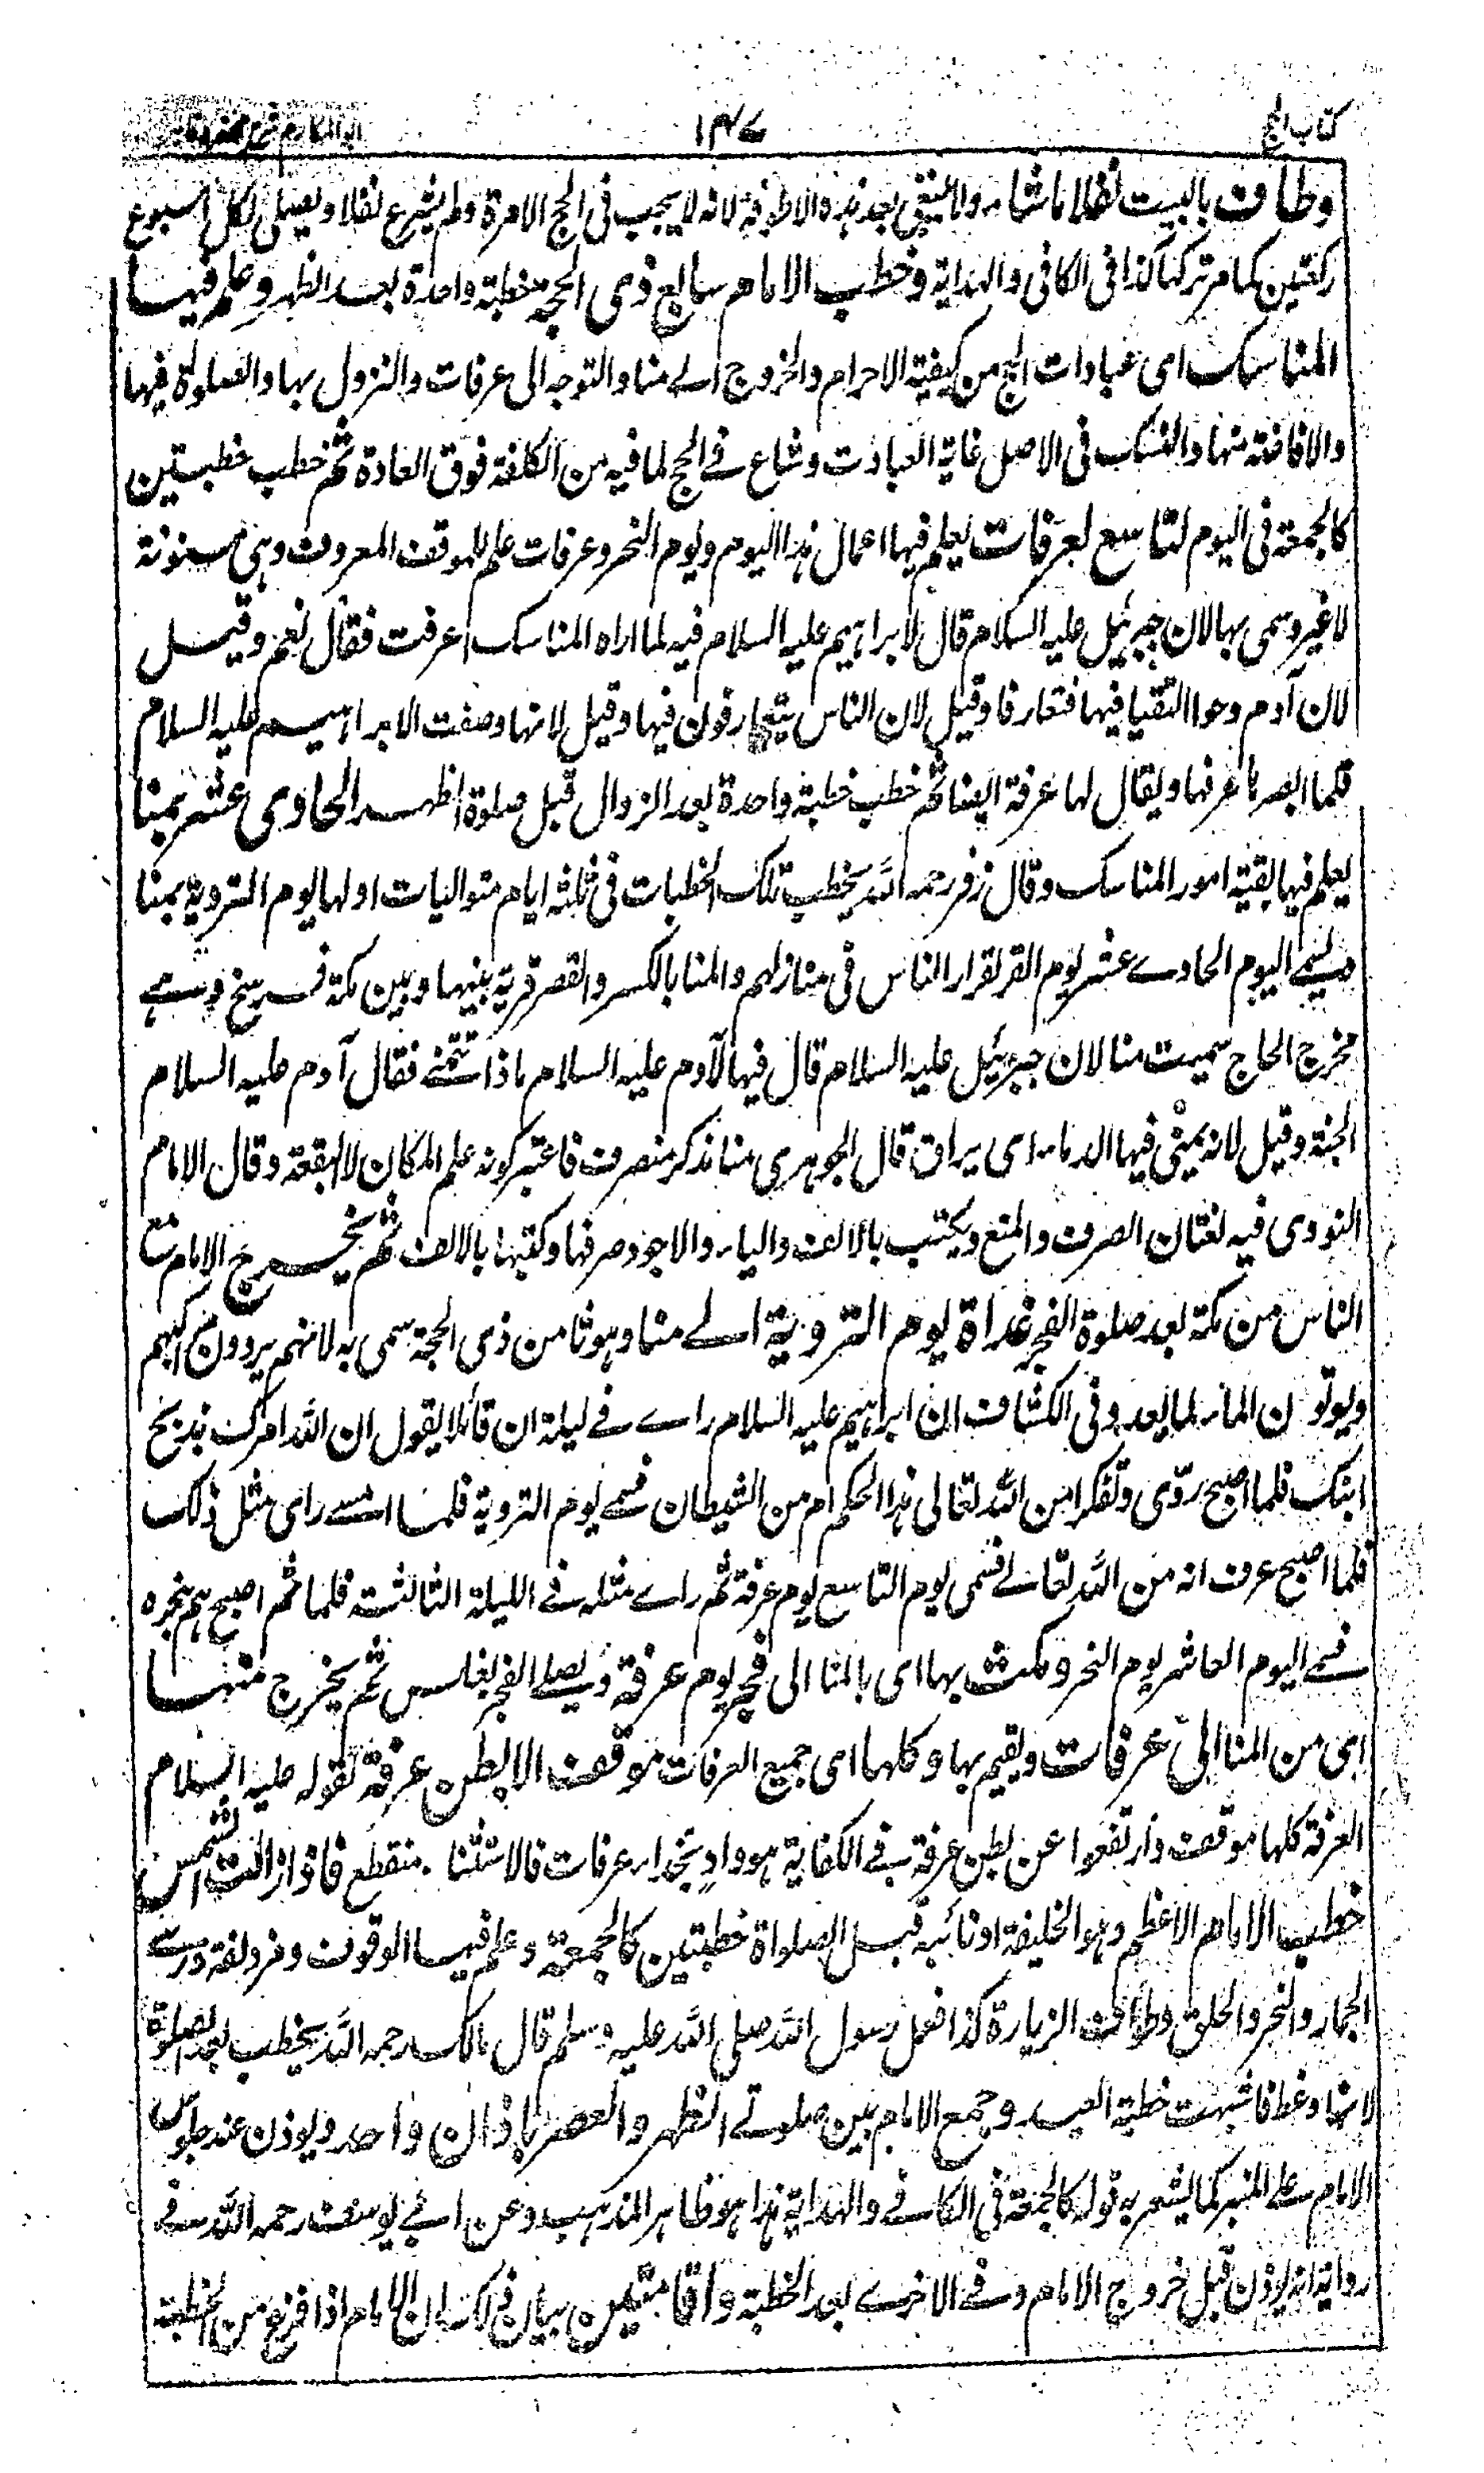 كتاب الحج
١٣٧
ابو المكارم شرح مختصر وقاية
وطاف بالبيت نفلا ما شاء ولا يسعى بعد هذه الاطوفة لانه لا يجب في الحج الا مرة ولم يشرع نفلا ويصلي لكل اسبوع
ركعتين كما مر تركنا كذا في الكافي والهداية وخطب الامام سابع ذي الحجة خطبة واحدة بعد الظهر وعلم فيها
المناسك اى عبادات الحج من كيفية الاحرام والخروج الے منا والتوجه الى عرفات والنزول بها والصلوة فيها
والافاضة منها والنسك في الاصل غاية العبادت وشاع في الحج لما فيه من الكلفة فوق العادة ثم خطب خطبتين
كالجمعة في اليوم التاسع بعرفات يعلم فيها اعمال هذا اليوم ويوم النحر وعرفات علم للموقف المعروف وهى مسنونة
لا غير وسمى بها لان جبرئيل عليه السلام قال لابراهيم عليه السلام فيه لما اراه المناسك اعرفت فقال نعم وقيل
لان آدم وحوا التقيا فيها فتعارفا وقيل لان الناس يتعارفون فيها وقيل لانها وصفت لابراهيم عليه السلام
فلما ابصرها عرفها ويقال لها عرفة ايضا ثم خطب خطبة واحدة بعد الزوال قبل صلوة الظهر الحاوى عشر بمنا
يعلم فيها بقية امور المناسك وقال زفر رحمه الله يخطب تلك الخطبات في ثلثة ايام متواليات اولها يوم التروية بمنا
ويسمے اليوم الحادے عشر يوم القر لقرار الناس في منازلهم والمنا بالكسر والقصر قرية بينها وبين مكة فرسخ وسے
مخرج الحاج سميت منا لان جبرئيل عليه السلام قال فيها لآدم عليه السلام ماذا تتمنے فقال آدم عليه السلام
الجنة وقيل لانه يمنى فيها الدماء اى يراق قال الجوهرى منا مذكر منصرف فاعتبر كونه علم المكان لا البقعة وقال الامام
النووى فيه لغتان الصرف والمنع ويكتب بالالف والياء والاجود صرفها وكتبها بالالف ثم يخرج الامام مع
الناس من مكة بعد صلوة الفجر غداة يوم التروية الے منا وهو ثامن ذى الحجة سمى به لانهم يروون ابلهم
ويولون الماء لما بعده وفى الكشاف ان ابراهيم عليه السلام راے فے ليلة ان قائلا يقول ان الله امرك بذبح
ابنك فلما اصبح روّى وتفكر امن الله تعالى هذا الحكم ام من الشيطان فسمے يوم التروية فلما امسے راى مثل ذلك
فلما اصبح عرف انه من الله تعالے فسمى يوم التاسع يوم عرفة ثم راے مثله فے الليلة الثالثة فلما ثم اصبح هم بنحره
فسمے اليوم العاشر يوم النحر ومكث بها اى بالمنا الى فجر يوم عرفة ويصلے الفجر بغلس ثم يخرج منها
اى من المنا الى عرفات ويقيم بها وكلها اى جميع العرفات موقف الا بطن عرفة لقوله عليه السلام
العرفة كلها موقف وارتفعوا عن بطن عرفة فے الكفاية هو وادٍ بحذاء عرفات فالاستثناء منقطع فاذا زالت الشمس
خطب الامام الاعظم وهو الخليفة او نائبه قبل الصلواة خطبتين كالجمعة وعلم فيها الوقوف ومزدلفة ورمے
الجمار والنحر والحلق وطواف الزيارة كذا فعل رسول الله صلى الله عليه وسلم قال مالك رحمه الله يخطب بعد الصلوة
لانها وعظ فاشبهت خطبة العيد وجمع الامام بين صلوتے الظهر والعصر باذان واحد ويوذن عند جلوس
الامام علے المنبر كما يشعر به قوله كالجمعة فى الكافے والهداية هذا هو ظاهر المذهب وعن ابے يوسف رحمه الله فے
رواية انه يوذن قبل خروج الامام وفے الاخرے بعد الخطبة واقامتين بيان ذلك ان الامام اذا فرغ من الخطبة